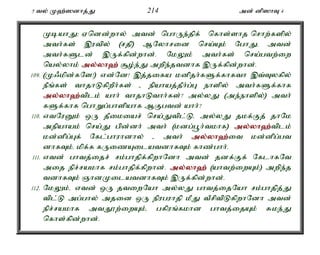 5 வல் முஹ்ஸனாத்து 214 அன் னிஸாவு 4
முடியாது; ஏனென்றால் அவன் பொருந்திக் கொள்ளாத சொற்களில்
அவர்கள் இரவில் (சதி) ஆலோசனை செய்யும் போது அவன்
அவர்களுடன் இருக்கின்றான். மேலும் அவர்கள் செய்பவற்றை
யெல்லாம் அல்லாஹ் சூழ்ந்து அறிந்தவனாக இருக்கின்றான்.
109. (முஃமின்களே!) என்னே! இத்தகைய மனிதர்களுக்காகவா இவ்வுலகில்
நீங்கள் வாதாடுகிறீர்கள் - நியாயத்தீர்ப்பு நாளில் அவர்களுக்காக
அல்லாஹ்விடம் யார் வாதாடுவார்கள்? அல்லது (அந்நாளில்) அவர்
களுக்காக பொறுப்பாளியாக ஆகுபவன் யார்?
110. எவரேனும் ஒரு தீமையைச் செய்துவிட்டு, அல்லது தமக்குத் தாமே
அநியாயம் செய்து பின்னர் அவர் (மனப்பூர்வமாக) அல்லாஹ்விடம்
மன்னிப்புக் கேட்பாரானால் - அவர் அல்லாஹ்வை மன்னிப்பவ
னாகவும், மிக்க கருணையுடையவனாகவும் காண்பார்.
111. எவன் பாவத்தைச் சம்பாதிக்கிறானோ அவன் தனக்குக் கேடாகவே
அதை நிச்சயமாக சம்பாதிக்கிறான். அல்லாஹ் (யாவற்றையும்) அறிந்த
வனாகவும் ஞானமுடையவனாகவும் இருக்கின்றான்.
112. மேலும், எவன் ஒரு தவறையோ அல்லது பாவத்தையோ சம்பாதித்து
விட்டு அப்பால் அதனை ஒரு நிரபராதி மீது வீசிவிடுகிறானோ அவன்
நிச்சயமாக அவதூற்றையும், பகிரங்கமான பாவத்தையும் சுமந்து
கொள்கின்றான்.